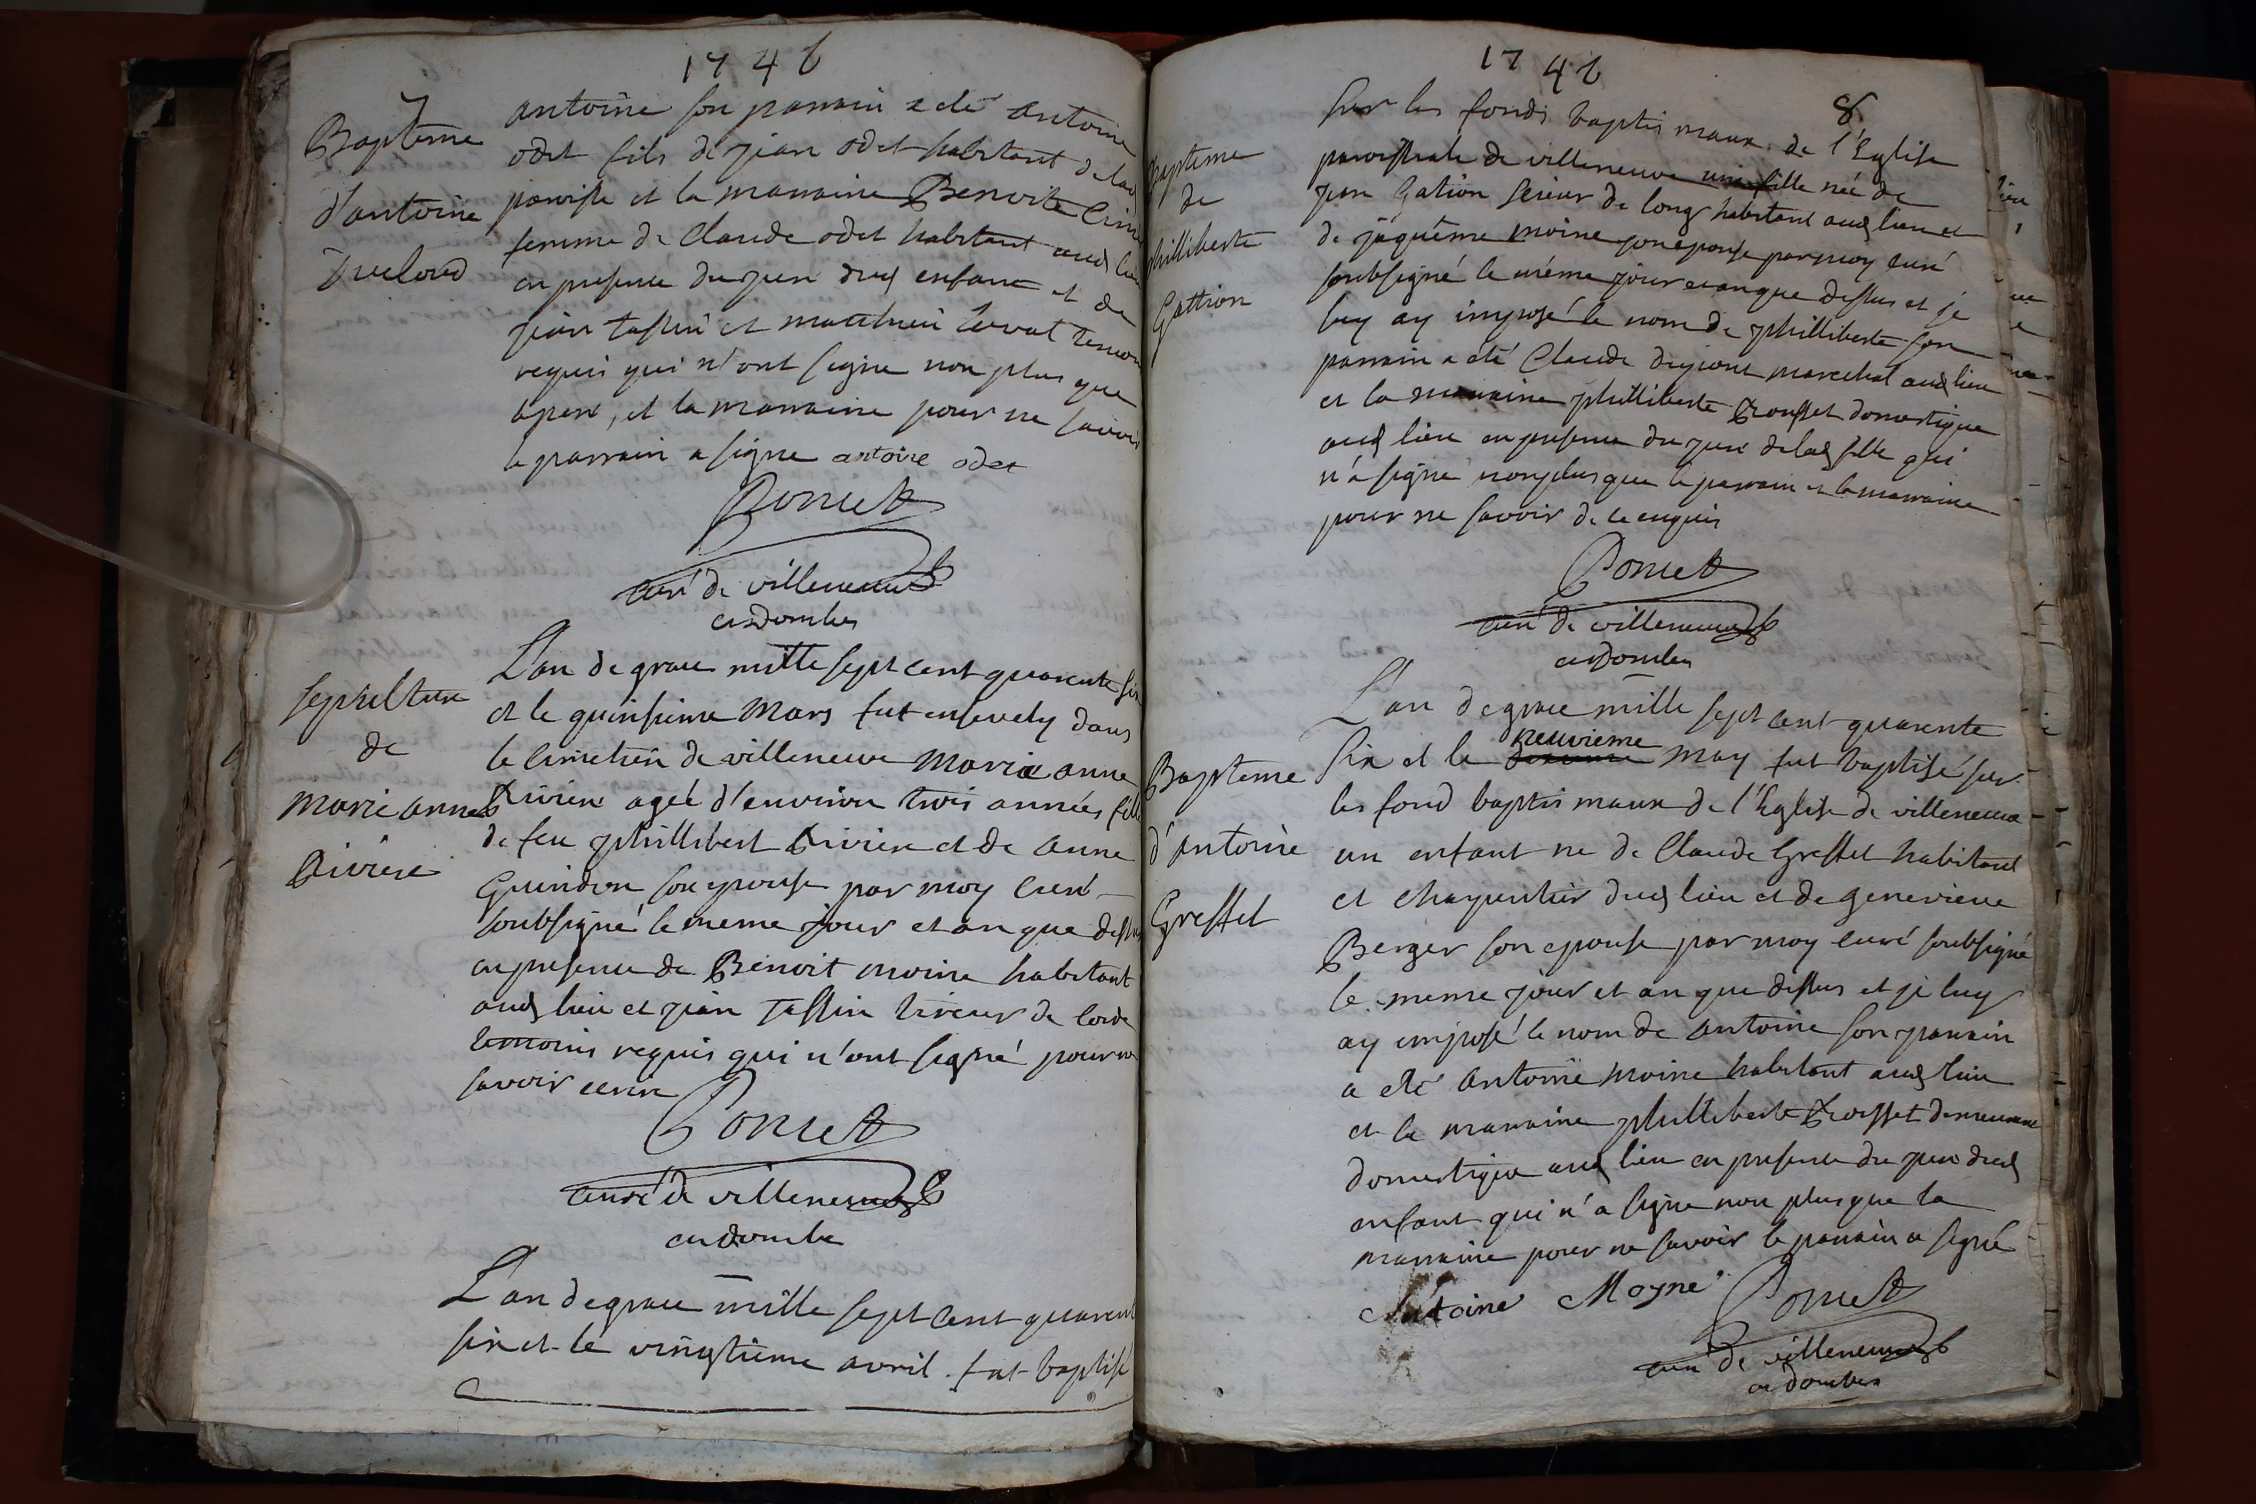 1746
Bapteme
d'antoine
antoine son parrain a eté antoine
odet fils de jean odet habitant de lad
paroisse et la marraine Benoite
femme de Claude odet habitant aud lieu
en presence du pere dud enfant et de
jean tassin et matthieu temoins
requis qui n'ont signe non plus que
le pere, et la marraine pour ne savoir
le parrain a signe antoine odet
Poncet
curé de villeneuve
en dombes
sepulture
de
marie anne
Riviere
L'an de grace mille sept cent quarente six
et le quinsieme Mars fut ensevely dans
le cimetiere de villeneuve Marie anne
Riviere ageé d'environ trois années fille
de feu phillibert Riviere et de anne
Guindon son epouse par moy curé
soubsigné le meme jour et an que dessus
en presence de Benoit moine habitant
aud lieu et jean tassin tireur de corde
temoins requis qui n'ont signé pour ne
savoir ecrire
Poncet
curé de villeneuve
en dombe
L'an de grace mille sept cent quarent
six et le vingtieme avril fut baptisé
1746
8
Bapteme
de
phillibeste
Gattion
sur les fonds baptismaux de l'Eglise
paroissiale de villeneuve une fille née de
jean Gation sieur de long habitant aud lieu et
de jaquême moine son epouse par moy curé
soubsigné le même jour et an que dessus et je
luy ay imposé le nom de phillibeste son
parrain a eté Claude marechal aud lieu
et la marraine phillibeste Rousset domestique
aud lieu en presence du pere de lad fille qui
n'a signe non plus que le parrain et la marraine
pour ne savoir de ce enquis
Poncet
curé de villeneuve
en dombes
Bapteme
d'antoine
Greffet
L'an de grace mille sept cent quarente
six et le neuvieme may fut baptisé sur
les fond baptismaux de l'Eglise de villeneuve
un enfant ne de Claude Greffet habitant
et charpentier dud lieu et de genevieve
Berger son epouse par moy curé soubsigné
le meme jour et an que dessus et je luy
ay imposé le nom de antoine son parrain
a eté antoine moine habitant aud lieu
et la marraine phillibeste Rousset demeurant
domestique aud lieu en presence du pere dud
enfant qui n'a signe non plus que la
marraine pour ne savoir le parrain a signé
Antoine Moyne
Poncet
curé de villeneuve
en dombes